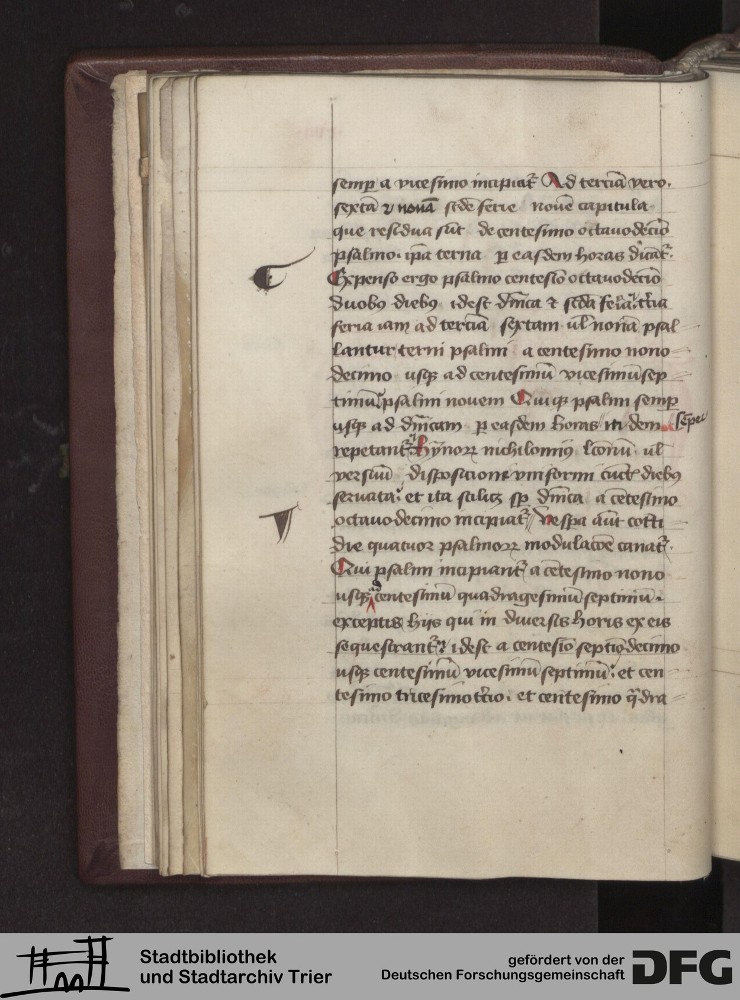 semp a vicesimo incipiat᷑ Ad terciā vero.
sextā ⁊ nonā scd̄e ferie nouē capitula
que residua sūt de centesimo octauodecīo
psalmo. ip̄a terna p easdem horas dicāt᷑.
Expenso ergo psalmo centesīo octauodecīo
duobꝰ diebꝰ idest dn̄ica ⁊ scd̄a feria. t̄cia
feria iam ad terciā sextam ul̄ nonā psal
lantur terni psalmi a centesimo nono
decimo usqꝫ ad centesimū vicesimū sep
timū psalmi nouem Quiqꝫ psalmi semp
usqꝫ ad dn̄icam p easdem horas itidem
sēpe
repetant᷑ hȳnoꝝ nichilominꝰ lc̄onū ul̄
versuū disposicione vniformi cūctꝭ diebꝰ
seruata. et ita scilicꝫ sp̄ dn̄ica a cētesimo
octauodecimo incipiat᷑ Vespa aūt cotti
die quatuor psalmoꝝ modulacōe canat᷑.
Qui psalmi incipiant᷑ a cētesimo nono
usqꝫ centesimū quadragesimū septimū.
exceptis hijs qui in diuersis horis ex eis
sequestrant᷑ idest a centesīo septīodecimo
usqꝫ centesimū vicesimū septimū. et cen
tesimo tricesimot̄cio. et centesimo q̄dra
Stadtbibliothek
und Stadtarchiv Trier
gefördert von der
Deutschen Forschungsgemeinschaft
DFG